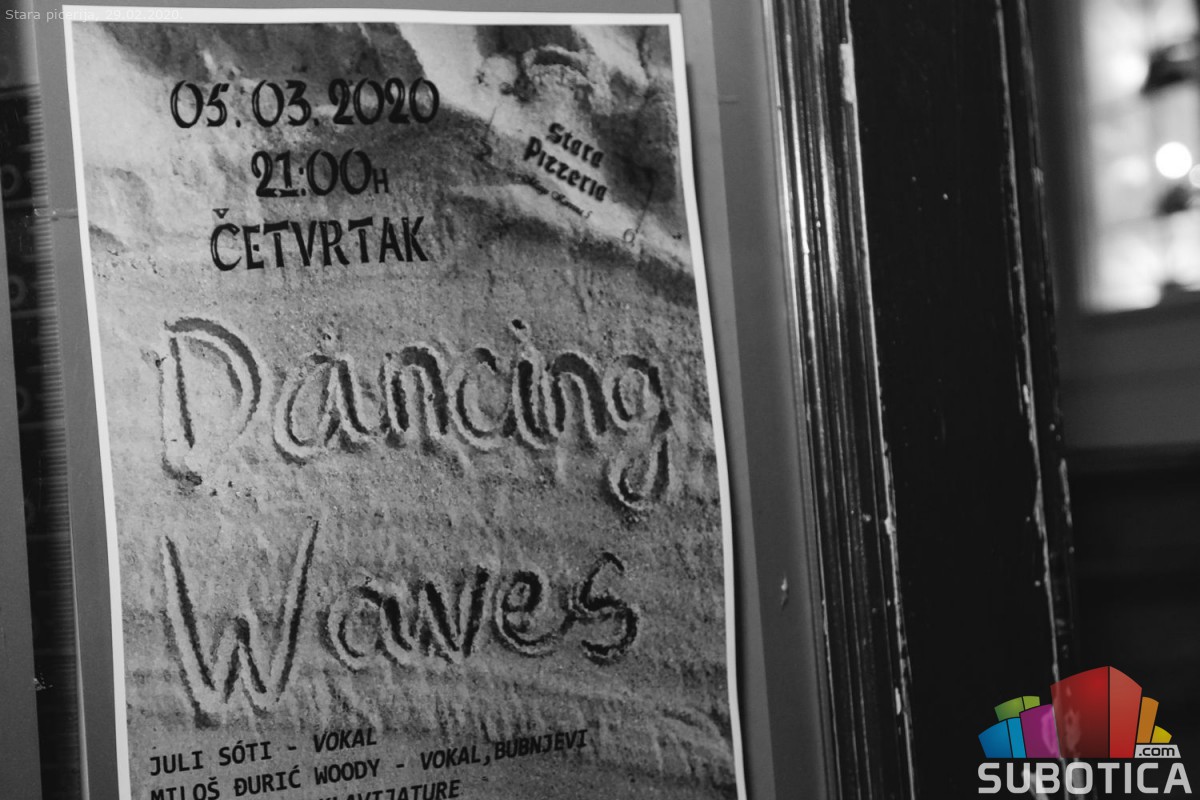 Stara picerija, 29.02.2020.
05.03.2020
21:00H
ČETVRTAK
Stara
Pizzeria
Dancing
Waves
JULI SÓTI - VOKAL
MILOŠ ĐURIĆ WOODY - VOKAL,BUBNJEVI
KLAVIJATURE
.com
SUBOTICA